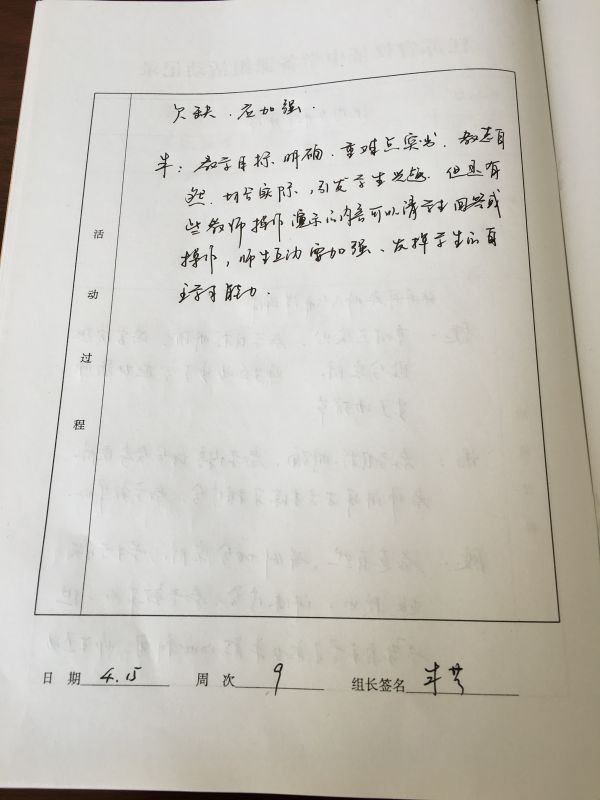 欠缺．应加强．
丰：教学目标明确．重难点突出．教态自
然．切合实际，引发学生兴趣．但还有
些教师操作演示的内容可以请学生回答或
操作，师生互动要加强、发挥学生的自
主学习能力．
活
动
过
程
日 期 4.15 周 次 9 组长签名